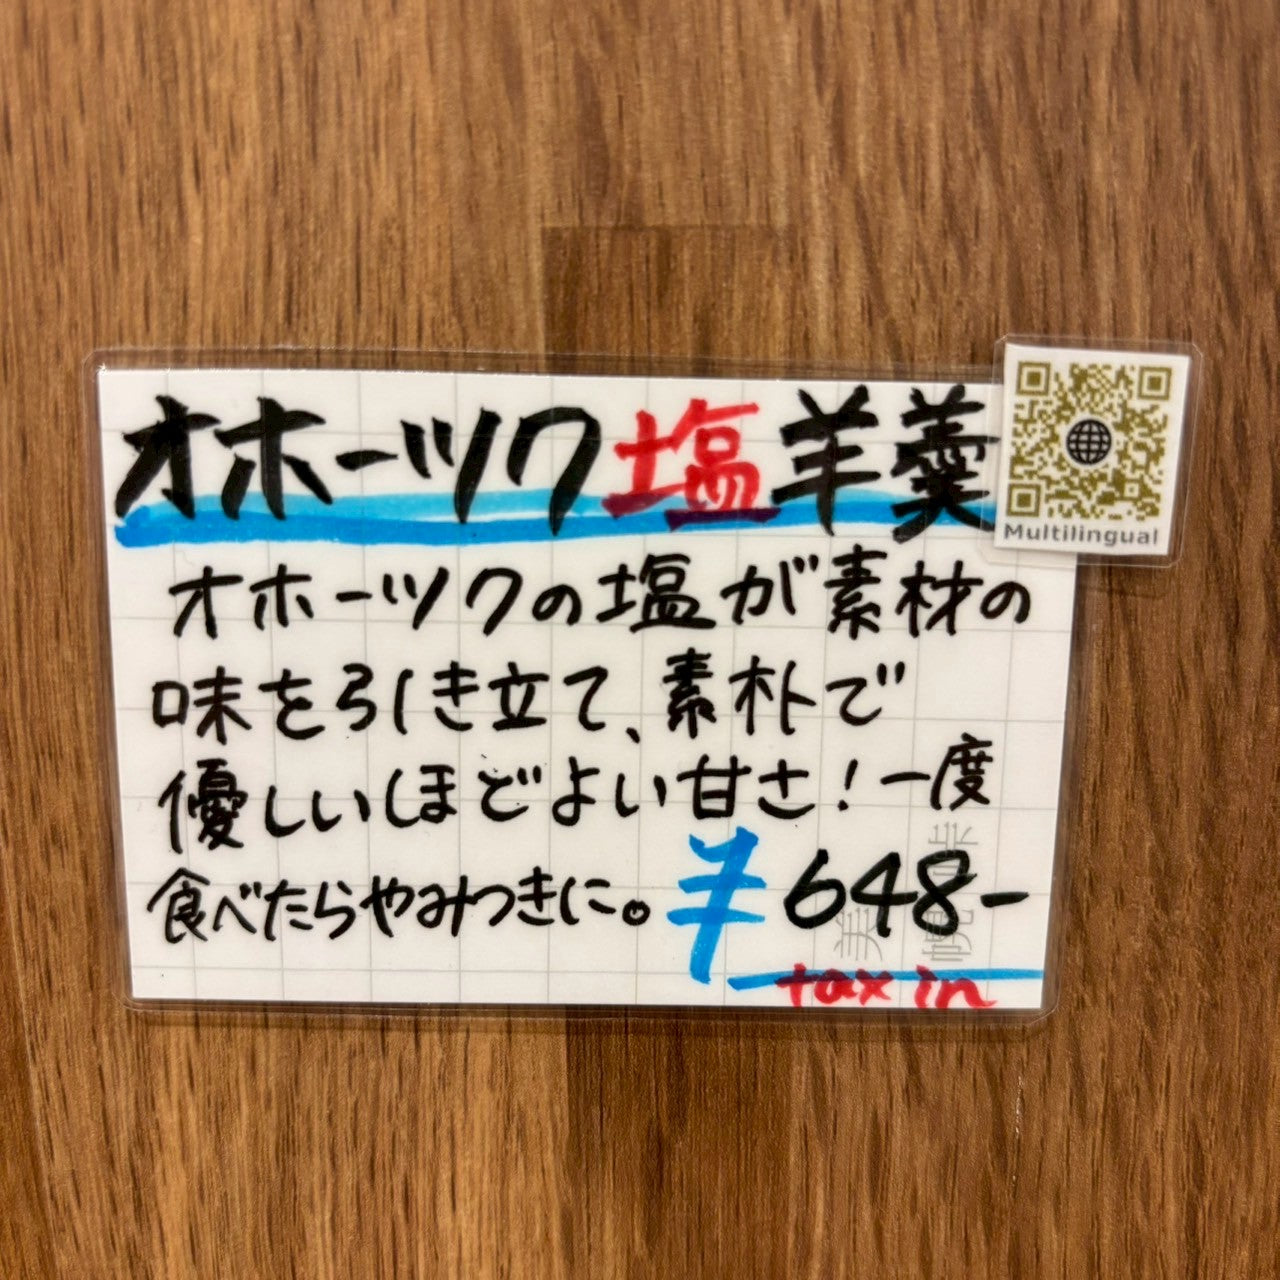 オホーツク塩羊羹
Multilingual
オホーツクの塩が素材の
味を引き立て、素朴で
優しいほどよい甘さ!一度
食べたらやみつきに。
¥648-
tax in